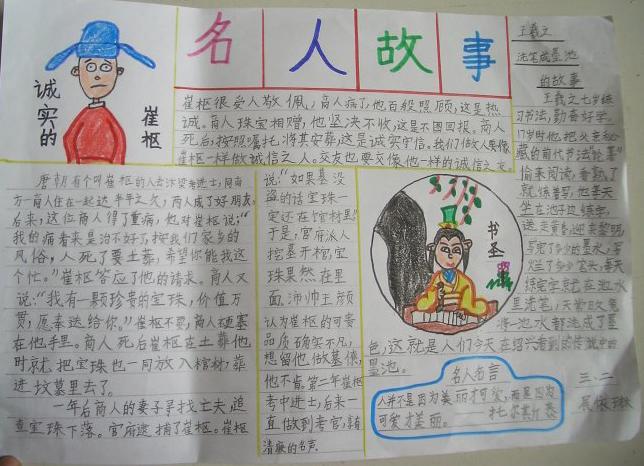 名人故事
诚实的
崔枢
崔枢很受人敬佩，商人病了，他百般照顾，这是热
诚。商人珠宝相赠，他坚决不收，这是不图回报。商人
死后，按照嘱托，将其安葬，这是诚实守信。我们做人要像
崔枢一样做诚信之人。交友也要交像他一样的诚信之友
唐朝有个叫崔枢的人去汴梁考进士，同南
方一商人住在一起达半年之久，两人成了好朋友。
后来，这位商人得了重病，他对崔枢说：“
我的病看来是治不好了，按我们家乡的
风俗，人死了要土葬，希望你能我这
个忙。”崔枢答应了他的请求。商人又
说：“我有一颗珍贵的宝珠，价值万
贯，愿奉送给你。”崔枢不要，商人硬塞
在他手里。商人死后崔枢在土葬他
时就把宝珠也一同放入棺材，葬
进坟墓里去了。
一年后商人的妻子寻找亡夫，追
查宝珠下落。官府逮捕了崔枢。崔枢
说：“如果墓没
盗的话宝珠一
定还在棺材里”
于是，官府派人
挖墓开棺，宝
珠果然在里
面。沛帅王彦
认为崔枢的可贵
品质确实不凡，
想留他做幕僚，
他不肯。第二年崔枢
考中进士，后来一
直做到考官，诗
清廉的名声。
王羲之
洗笔成墨池
的故事
王羲之七岁练
习书法，勤奋好学。
17岁时他把父亲秘
藏的前代书法
偷来阅读，看熟了
就练着写，他每天
坐在池子边练字，
送走黄昏，迎来黎明，
写完了多少的墨水，写
烂了多少笔头，每天
练完字就在池水
里洗笔，天长日久竟
将一池水都洗成了墨
色，这就是人们今天在绍兴看到的传说中的
墨池。
书圣
名人名言
人并不是因为美丽才可爱，而是因为
可爱才美丽。
托尔斯泰
三.二